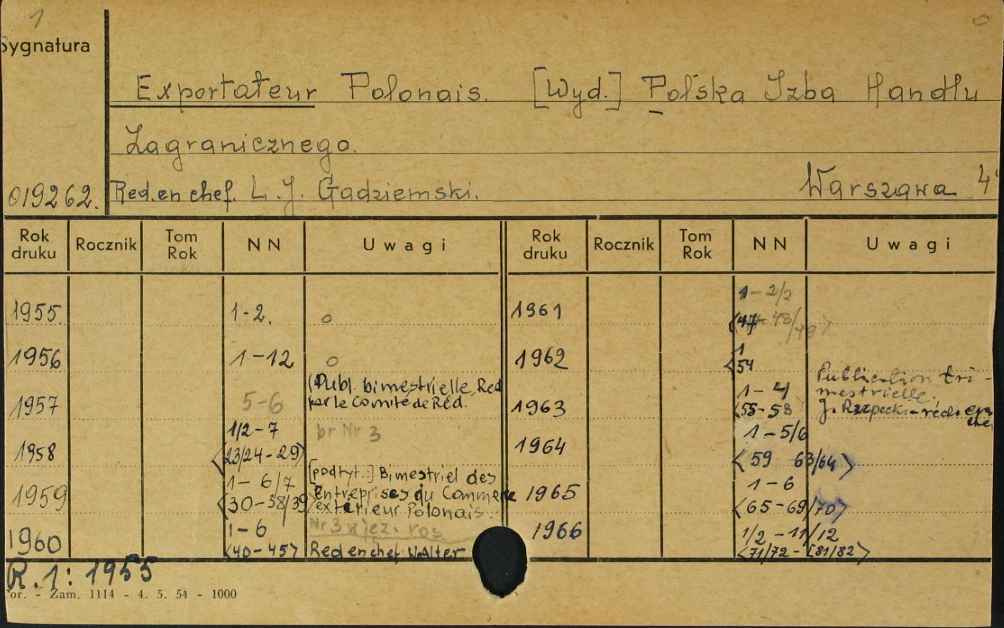 1
Sygnatura
Exportateur Polonais. [Wyd.] Polska Izba Handlu
Zagranicznego.
019262. Red. en chef. L. J. Gadziemski. Warszawa 4°
Rok druku Rocznik Tom Rok NN Uwagi Rok druku Rocznik Tom Rok NN Uwagi
1955. 1-2. o
1956 1-12 o
(Publ. bimestrielle, Red
1957 5-6 par le Comité de Réd.
1/2-7 br Nr 3
1958 <23/24-29>
1-6/7 [podtyt.:] Bimestriel des
1959 <30-38/39> Entreprises du Commerce
extérieur Polonais.
1-6 Nr 3 w jęz. ros
1960 <40-45> Red en chef Walter
1-2/2
1961 <47 48/49>
1
1962 <54
Publication tri-
1-4 mestrielle.
1963 <55-58 J. Rzepecki - red. en
chef
1-5/6
1964 <59 63/64>
1-6
1965 <65-69/70>
1966 1/2-11/12
<71/72-81/82>
R. 1: 1955
or. - Zam. 1114 - 4. 5. 54 - 1000